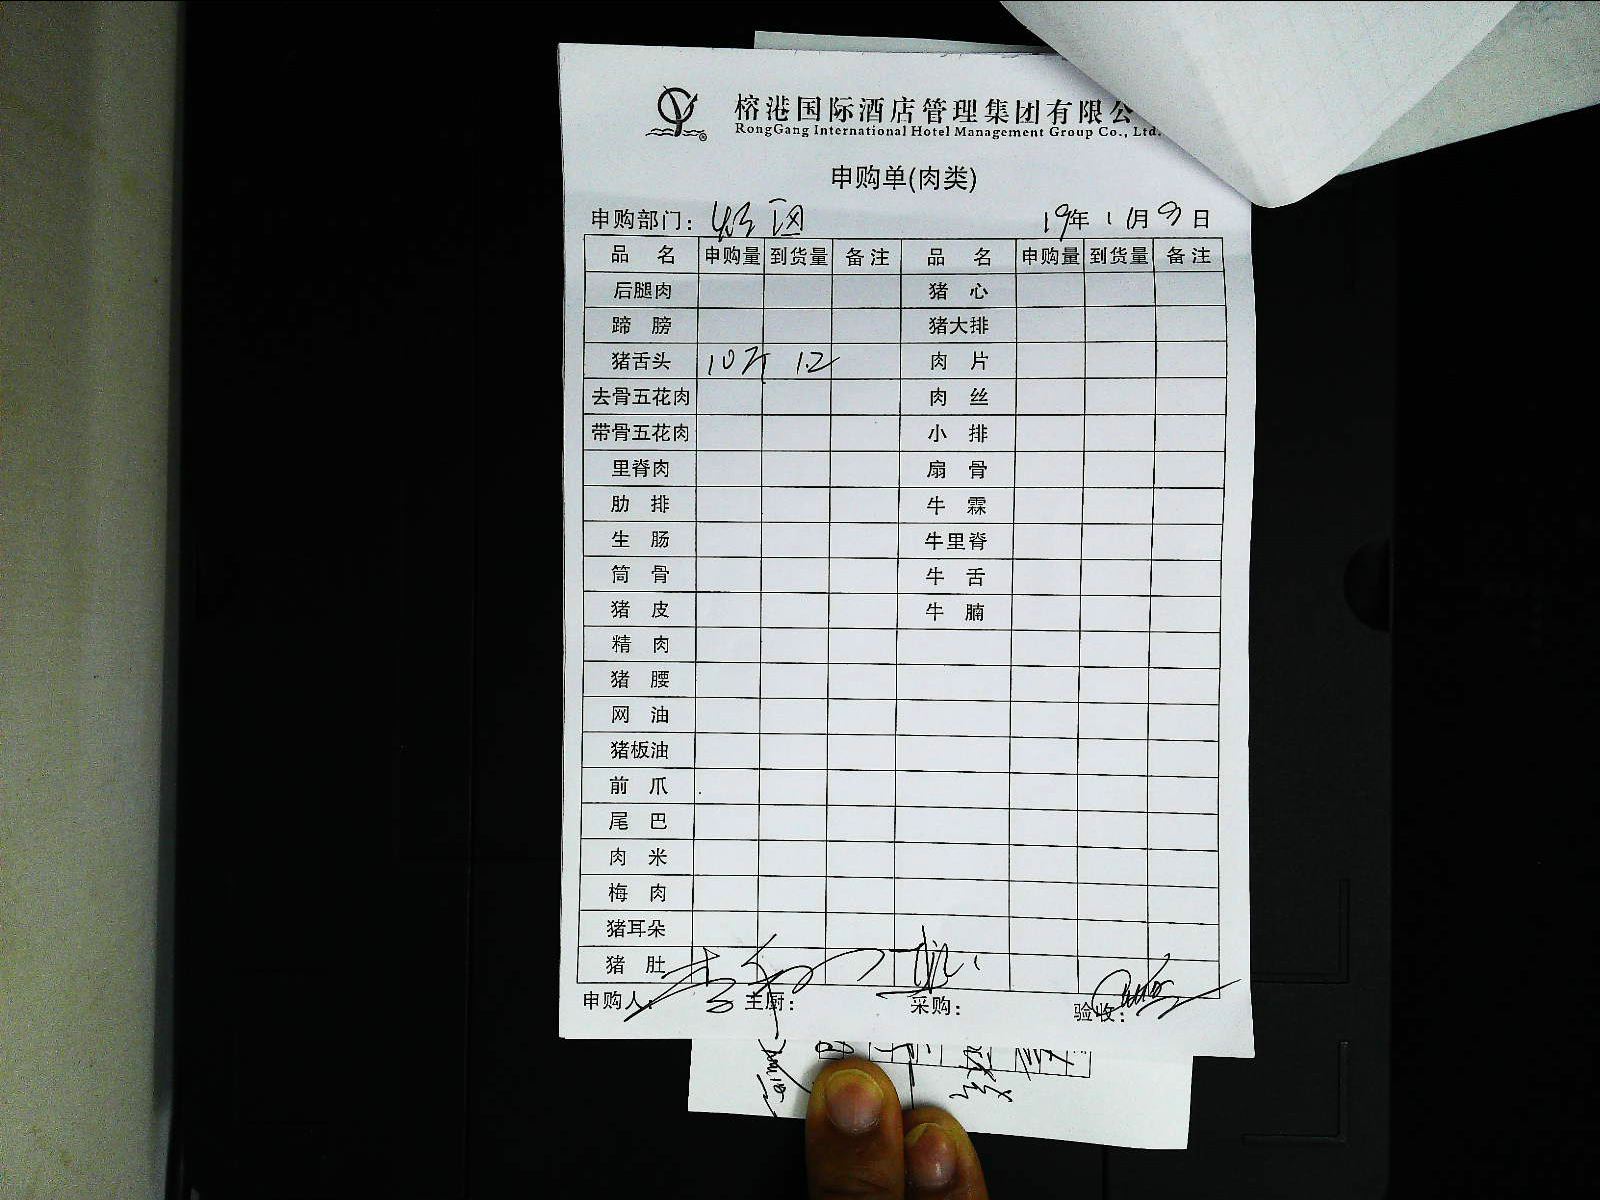 榕港国际酒店管理集团有限公
RongGang International Hotel Management Group Co., Ltd.
申购单(肉类)
申购部门: 19年 11月 9日
品 名 申购量 到货量 备注 品 名 申购量 到货量 备注
后腿肉 猪 心
蹄 膀 猪大排
猪舌头 10斤 12 肉 片
去骨五花肉 肉 丝
带骨五花肉 小 排
里脊肉 扇 骨
肋 排 牛 霖
生 肠 牛里脊
筒 骨 牛 舌
猪 皮 牛 腩
精 肉
猪 腰
网 油
猪板油
前 爪
尾 巴
肉 米
梅 肉
猪耳朵
猪 肚
申购人: 主厨: 采购: 验收: